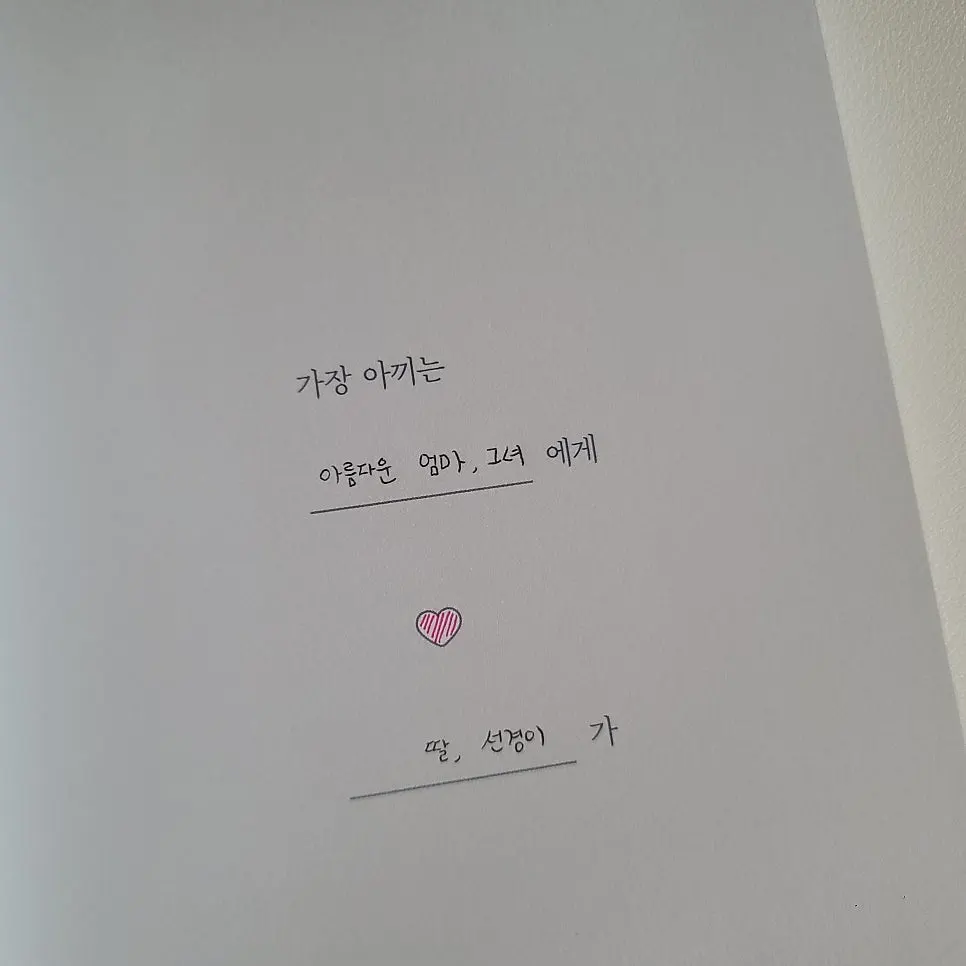 가장 아끼는
아름다운 엄마, 그녀 에게
딸, 선경이 가